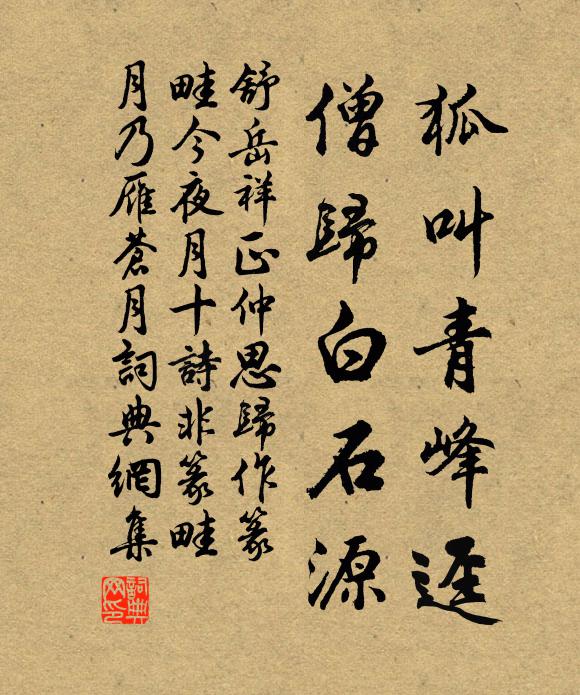 狐叫青峰逕
僧歸白石源
舒岳祥正仲思歸作篆
畦今夜月十詩非篆畦
月乃雁蒼月詞典網集
詞典网印